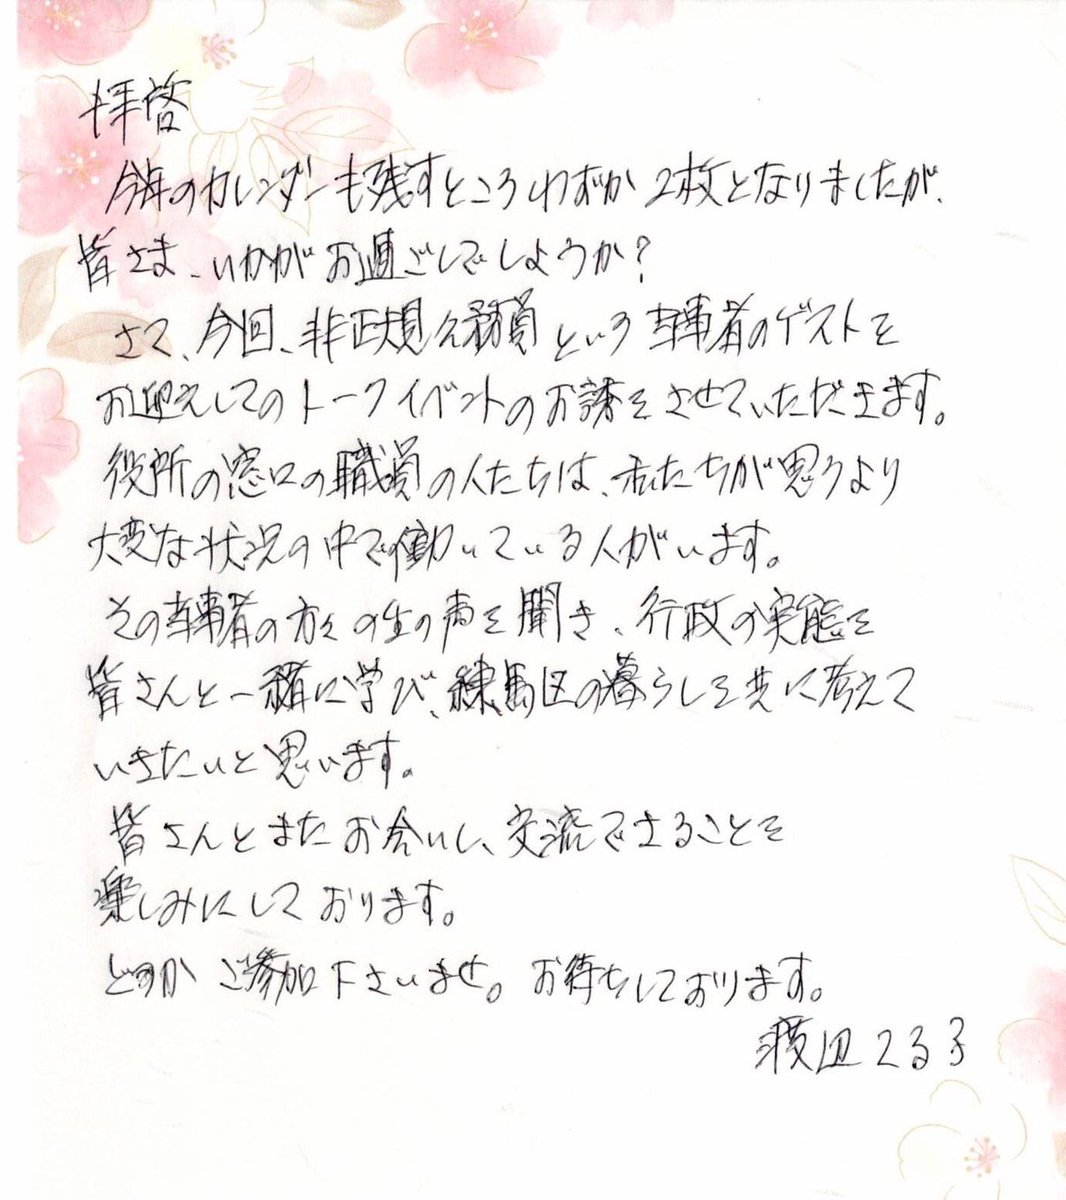 拝啓
今年のカレンダーも残すところわずか2枚となりましたが、
皆さま、いかがお過ごしでしょうか?
さて、今回、非正規公務員という当事者のゲストを
お迎えしてのトークイベントのお誘をさせていただきます。
役所の窓口の職員の人たちは、私たちが思うより
大変な状況の中で働いている人がいます。
その当事者の方々の生の声を聞き、行政の実態を
皆さんと一緒に学び、練馬区の暮らしを共に考えて
いきたいと思います。
皆さんとまたお会いし、交流できることを
楽しみにしております。
どうかご参加下さいませ。お待ちしております。
渡辺てる子